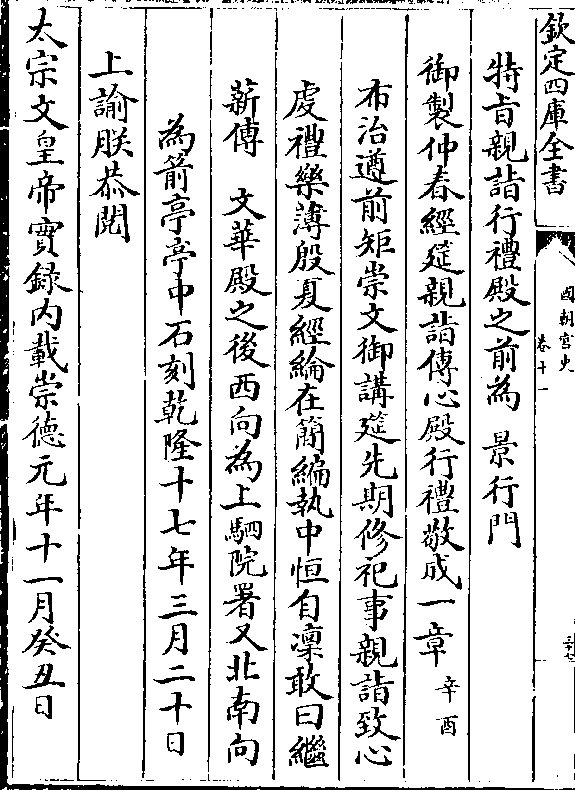 欽定四庫全書
國朝宮史
卷十一
特旨親詣行禮殿之前為　景行門
御製仲春經筵親詣傳心殿行禮敬成一章　辛酉
布治遵前矩崇文御講筵先期修祀事親詣致心
虔禮樂薄殷夏經綸在簡編執中恒自凛敢曰繼
薪傳　文華殿之後西向為上駟院署又北南向
為箭亭亭中石刻乾隆十七年三月二十日
上諭朕恭閱
太宗文皇帝實録内載崇德元年十一月癸丑日